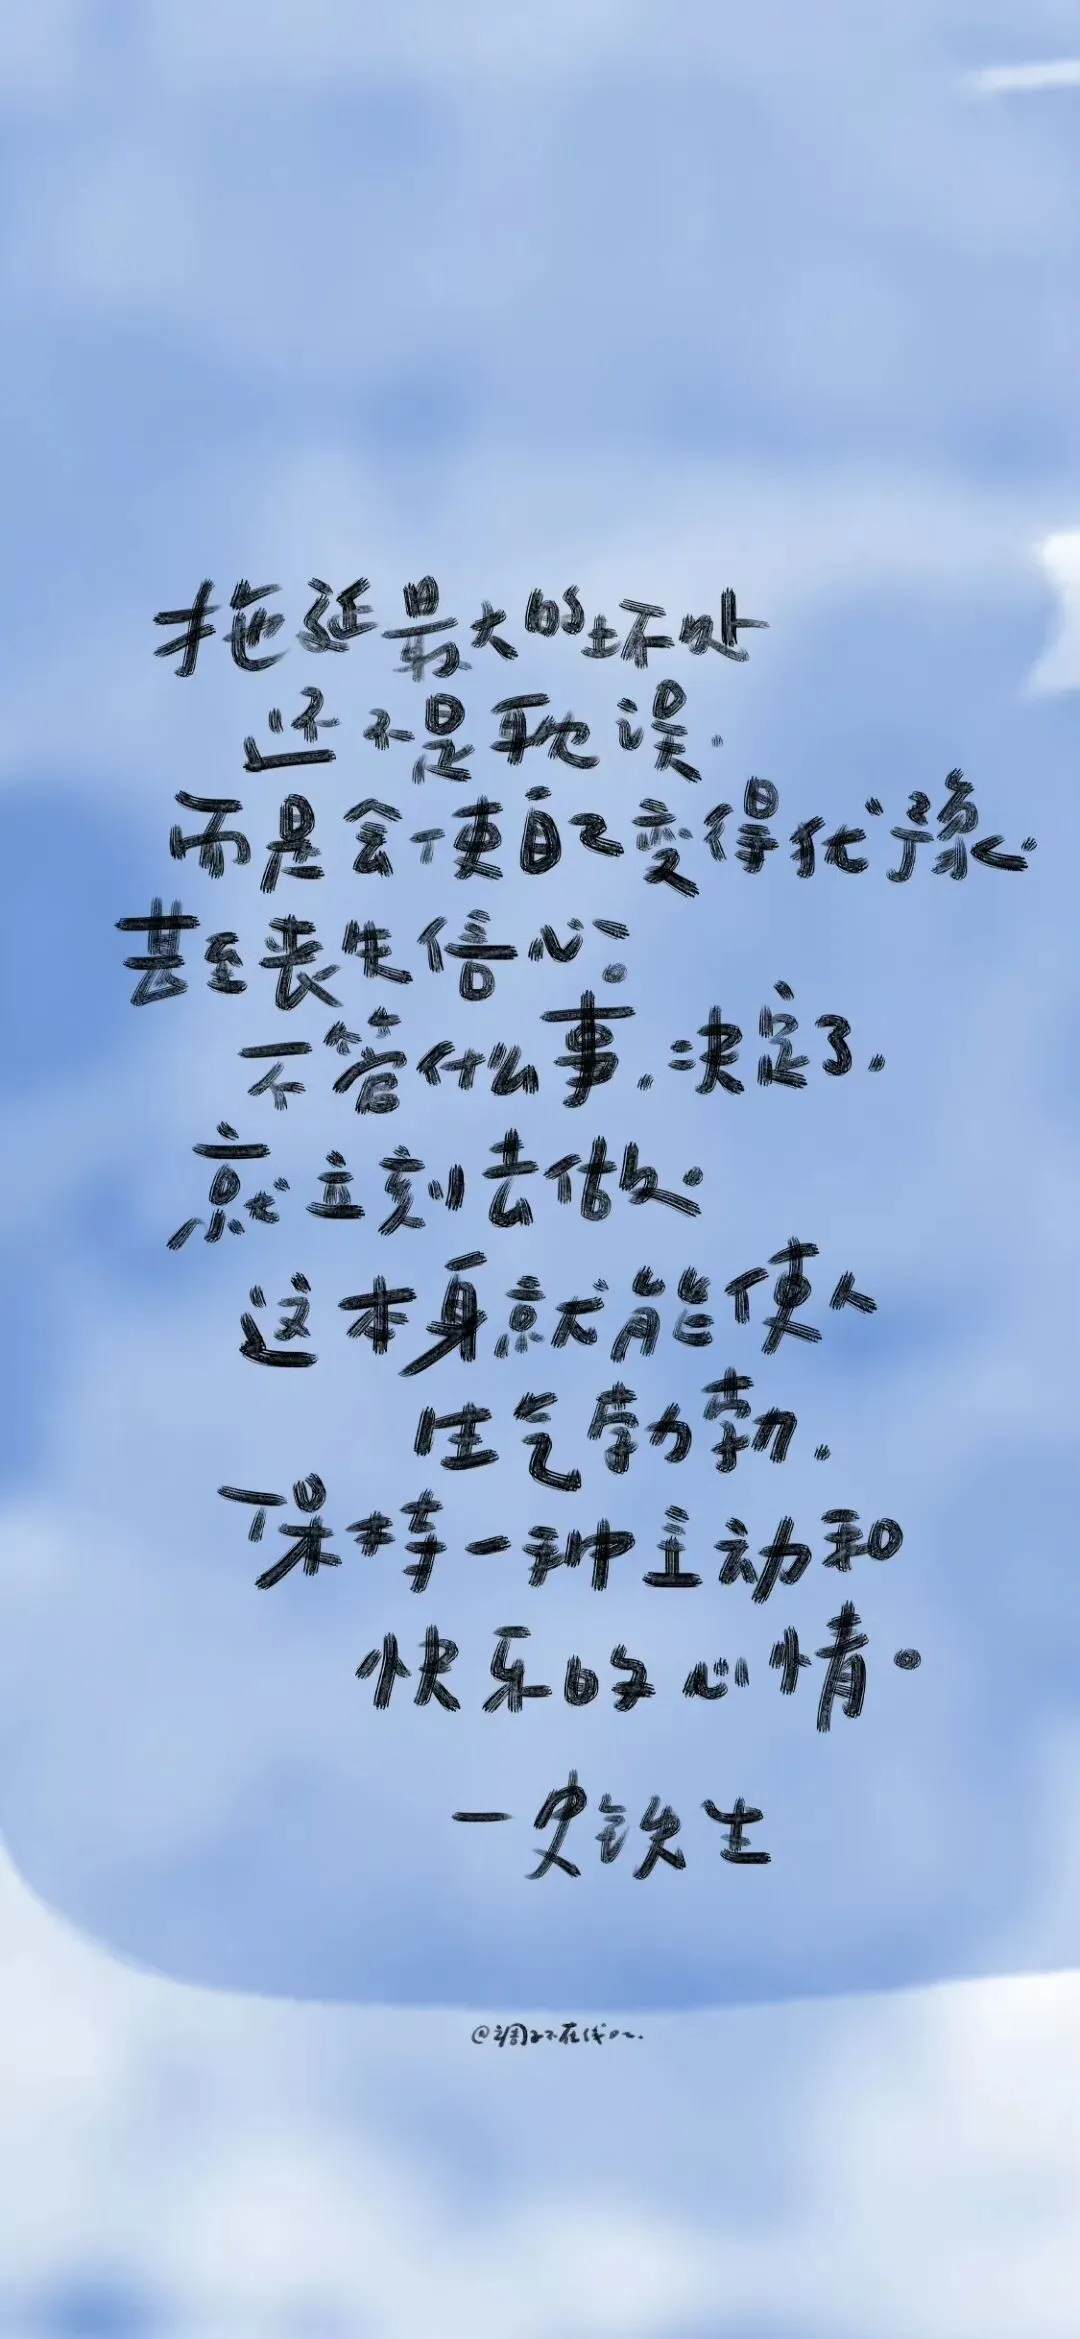 拖延最大的坏处
还不是耽误.
而是会使自己变得优豫.
甚至丧失信心。
不管什么事.决定了.
就立刻去做.
这本身就能使人
生气勃勃.
保持一种主动和
快乐的心情。
—史铁生